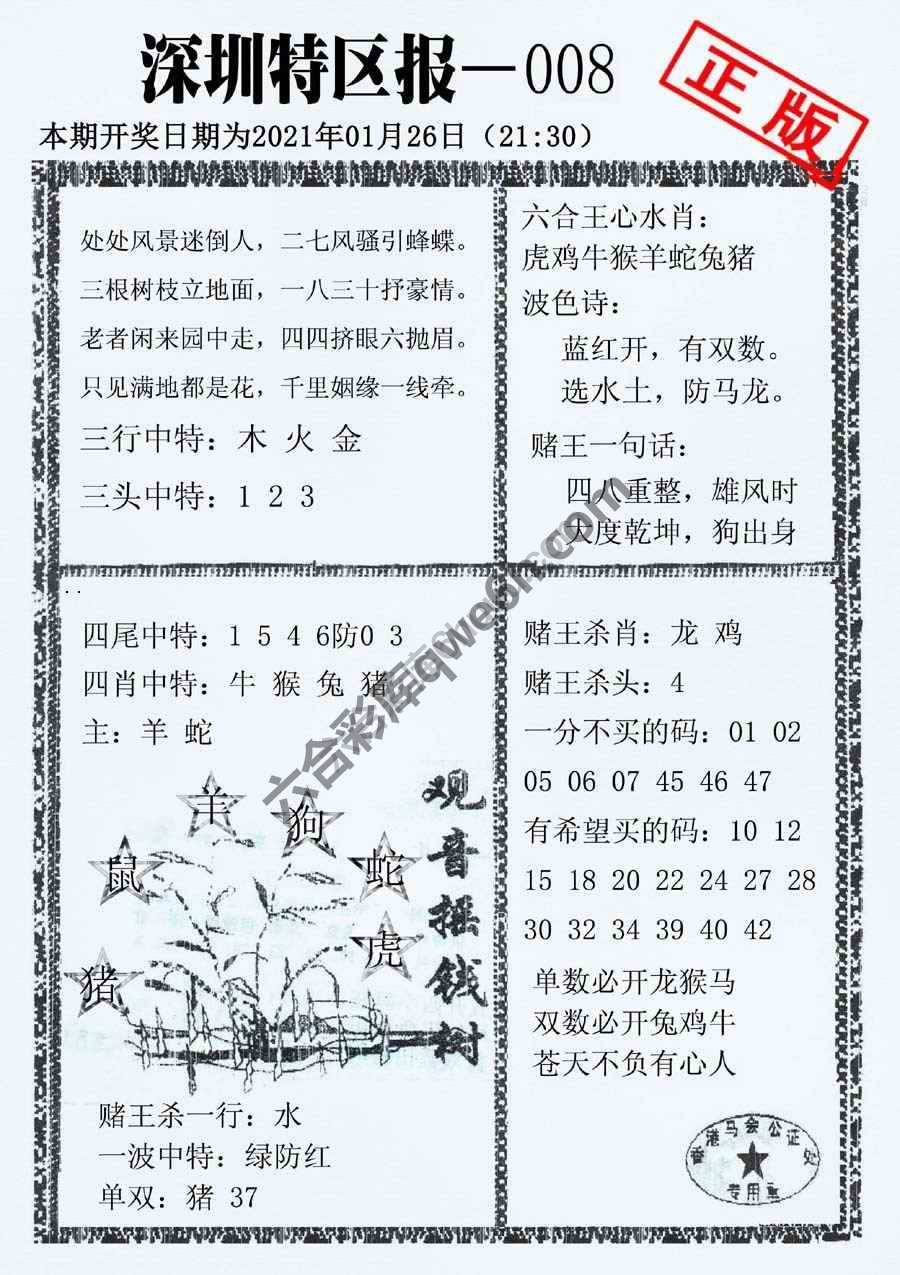 深圳特区报—008
正版
本期开奖日期为2021年01月26日（21:30）
处处风景迷倒人，二七风骚引蜂蝶。
三根树枝立地面，一八三十抒豪情。
老者闲来园中走，四四挤眼六抛眉。
只见满地都是花，千里姻缘一线牵。
三行中特：木 火 金
三头中特：1 2 3
六合王心水肖：
虎鸡牛猴羊蛇兔猪
波色诗：
蓝红开，有双数。
选水土，防马龙。
赌王一句话：
四八重整，雄风时
大度乾坤，狗出身
四尾中特：1 5 4 6防0 3
四肖中特：牛 猴 兔 猪
主：羊 蛇
羊
狗
鼠
蛇
虎
猪
观音摇钱树
赌王杀一行：水
一波中特：绿防红
单双：猪 37
赌王杀肖：龙 鸡
赌王杀头：4
一分不买的码：01 02
05 06 07 45 46 47
有希望买的码：10 12
15 18 20 22 24 27 28
30 32 34 39 40 42
单数必开龙猴马
双数必开兔鸡牛
苍天不负有心人
香港马会公证处
专用章
六合彩库qwe6h.com